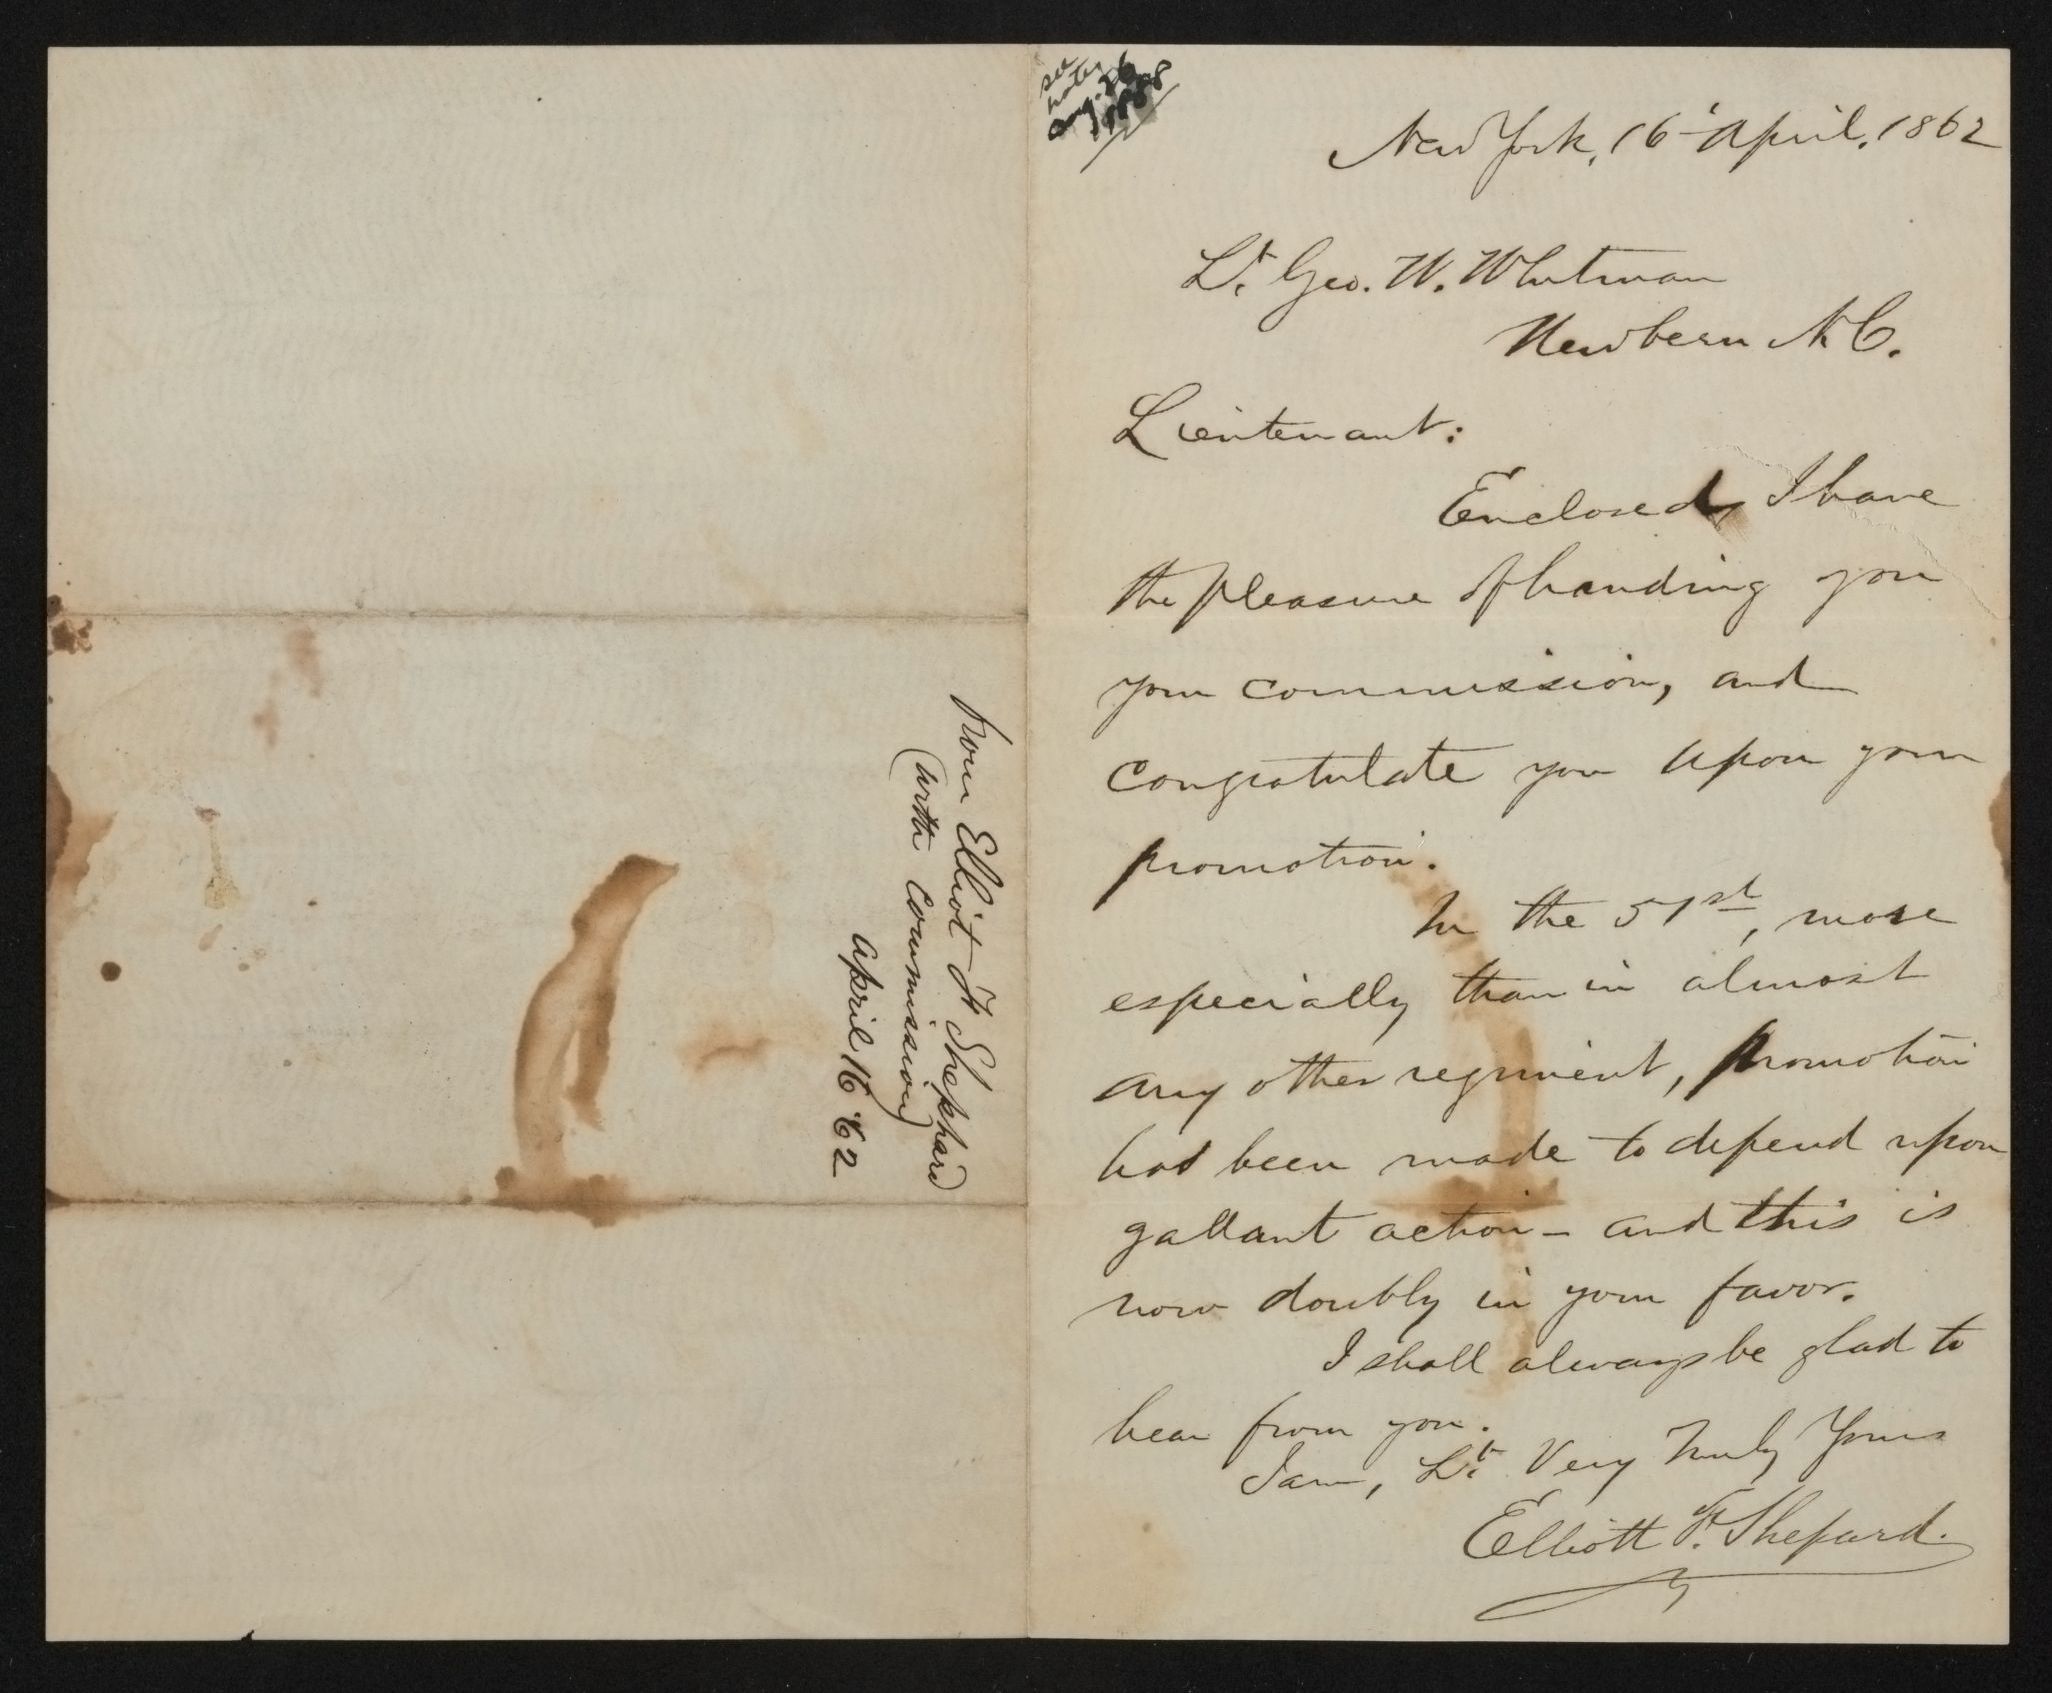 from Elliot F Shephard
(with commission)
April 16 '62
see
notes
Aug. 26
1888
New York, 16 April, 1862
Lt. Geo. W. Whitman
Newbern N.C.
Lieutenant:
Enclosed, I have
the pleasure of handing you
your commission, and
congratulate you upon your
promotion.
In the 51st, more
especially than in almost
any other regiment, promotion
has been made to depend upon
gallant action – and this is
now doubly in your favor.
I shall always be glad to
hear from you.
I am, Lt. Very Truly Yours
Elliott F. Shepard.